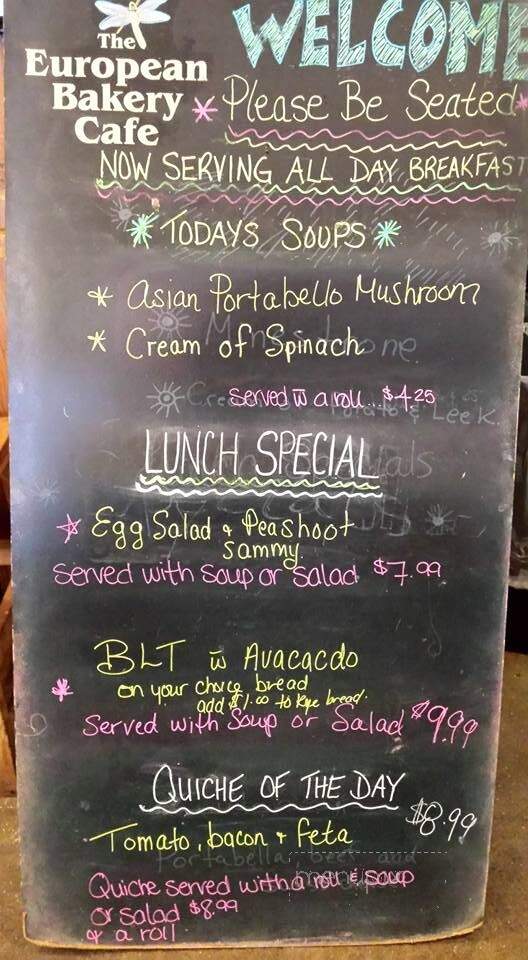 WELCOME
The
European
Bakery
Cafe
Please Be Seated
NOW SERVING ALL DAY BREAKFAST
TODAYS SOUPS
* Asian Portabello Mushroom
* Cream of Spinach
served w̄ a roll... $4.25
LUNCH SPECIAL
Egg Salad & Peashoot
Sammy.
Served with Soup or Salad $7.99
BLT w̄ Avacacdo
on your choice bread
add $1.00 to Rye bread.
Served with Soup or Salad $9.99
QUICHE OF THE DAY
$8.99
Tomato, bacon + feta
Quiche served with a roll & soup
or salad $8.99
& a roll